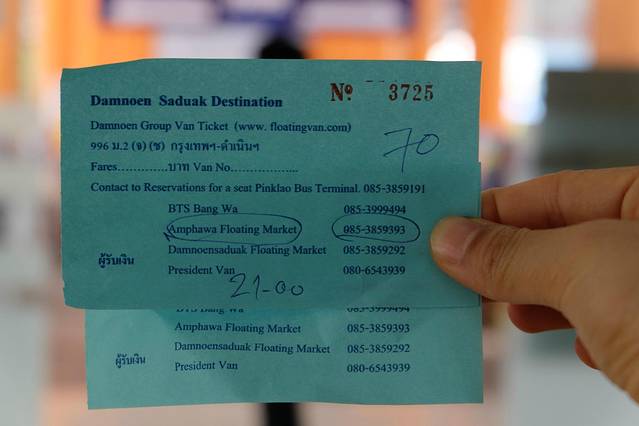 Damnoen Saduak Destination
Nº 3725
Damnoen Group Van Ticket (www. floatingvan.com)
996 ม.2 (จ) (ช) กรุงเทพฯ-ดำเนินฯ
70
Fares.............บาท Van No.................
Contact to Reservations for a seat Pinklao Bus Terminal. 085-3859191
BTS Bang Wa 085-3999494
Amphawa Floating Market 085-3859393
Damnoensaduak Floating Market 085-3859292
ผู้รับเงิน
President Van 080-6543939
21-00
BTS Bang Wa 085-3999494
Amphawa Floating Market 085-3859393
Damnoensaduak Floating Market 085-3859292
ผู้รับเงิน
President Van 080-6543939